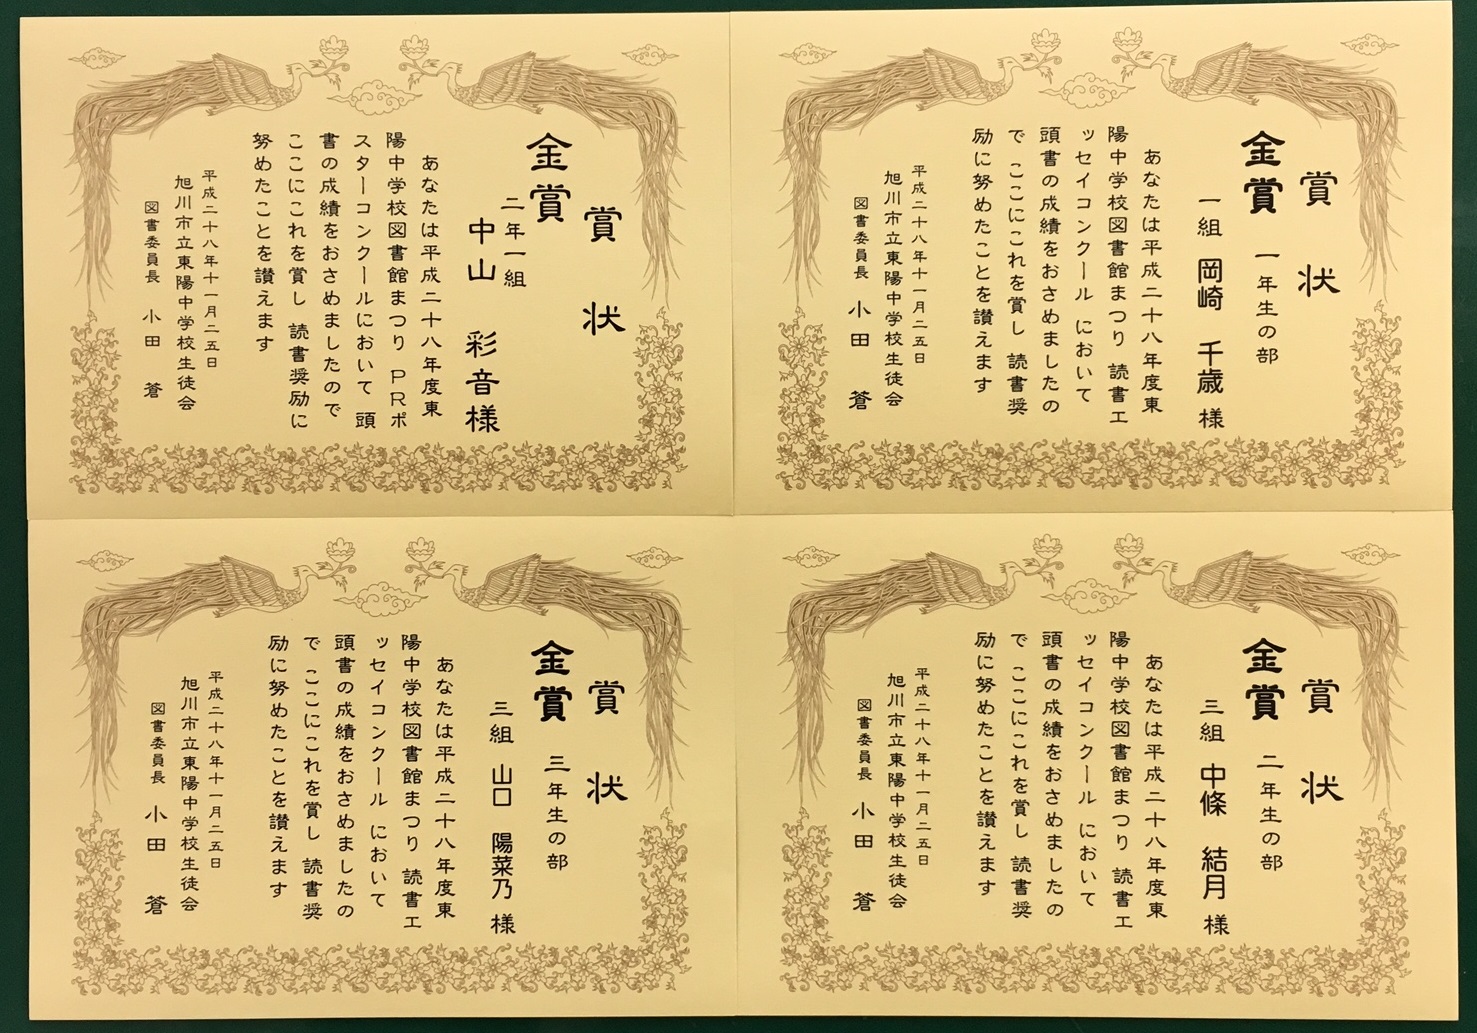 賞状
金賞 一年生の部
一組 岡崎 千歳 様
あなたは平成二十八年度東
陽中学校図書館まつり 読書エ
ッセイコンクール において
頭書の成績をおさめましたの
で ここにこれを賞し 読書奨
励に努めたことを讃えます
平成二十八年十一月二五日
旭川市立東陽中学校生徒会
図書委員長 小田 蒼
賞状
金賞
二年一組
中山 彩音様
あなたは平成二十八年度東
陽中学校図書館まつり PRポ
スターコンクールにおいて 頭
書の成績をおさめましたので
ここにこれを賞し 読書奨励に
努めたことを讃えます
平成二十八年十一月二五日
旭川市立東陽中学校生徒会
図書委員長 小田 蒼
賞状
金賞 二年生の部
三組 中條 結月 様
あなたは平成二十八年度東
陽中学校図書館まつり 読書エ
ッセイコンクール において
頭書の成績をおさめましたの
で ここにこれを賞し 読書奨
励に努めたことを讃えます
平成二十八年十一月二五日
旭川市立東陽中学校生徒会
図書委員長 小田 蒼
賞状
金賞 三年生の部
三組 山口 陽菜乃 様
あなたは平成二十八年度東
陽中学校図書館まつり 読書エ
ッセイコンクール において
頭書の成績をおさめましたの
で ここにこれを賞し 読書奨
励に努めたことを讃えます
平成二十八年十一月二五日
旭川市立東陽中学校生徒会
図書委員長 小田 蒼